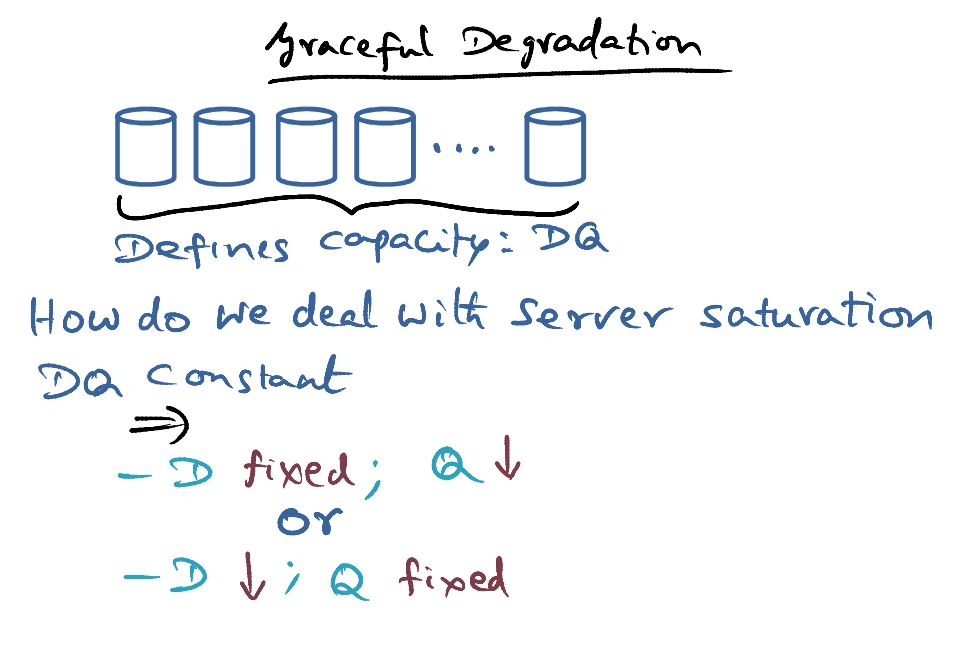 Graceful Degradation
....
Defines capacity: DQ
How do we deal with server saturation
DQ constant
⇒
- D fixed; Q ↓
or
- D ↓; Q fixed